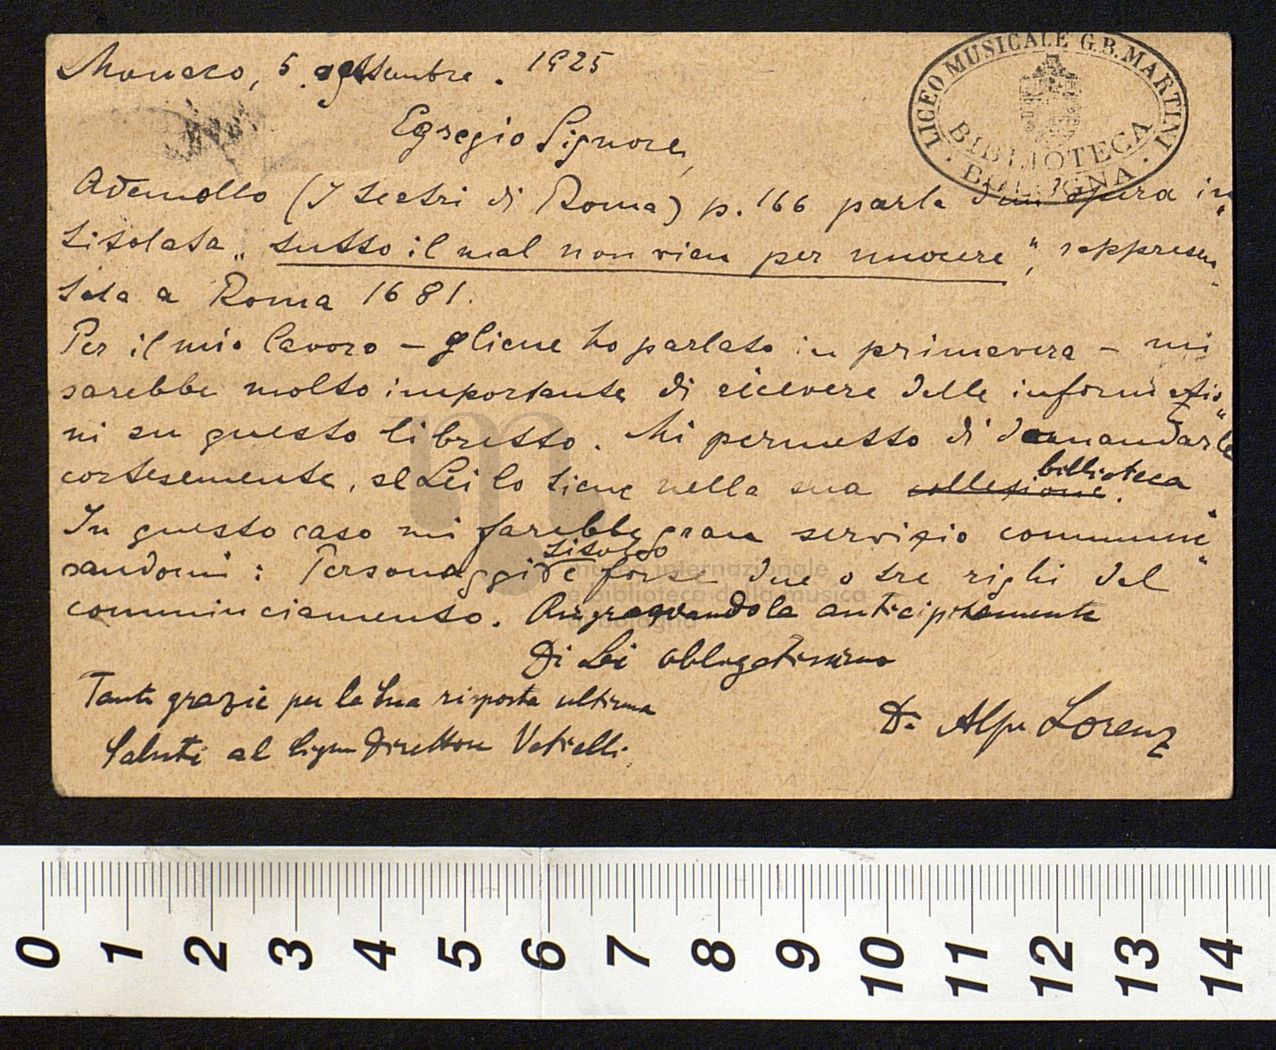 Monaco, 5. settembre. 1925
LICEO MUSICALE G.B. MARTINI
BIBLIOTECA
· BOLOGNA ·
Egregio Signore,
Ademollo (I teatri di Roma) p. 166 parla d'un opera in
titolata „tutto il mal non vien per nuocere“, rappresen
tata a Roma 1681.
Per il mio lavoro – gliene ho parlato in primavera – mi
sarebbe molto importante di ricevere delle informazio
ni su questo libretto. Mi permetto di domandarle
cortesemente, se Lei lo tiene nella sua collezione biblioteca.
In questo caso mi farebbe gran servizio communi
candomi: Personaggi titolo e forse due o tre righi del
comminciamento. Ringraziandola anticipatamente
Di Lei obbligatissimo
Dr. Alfr. Lorenz
Tante grazie per la Sua risposta ultima
Saluti al Sign Direttore Vatielli.
museo internazionale
e biblioteca della musica
di bologna
0 1 2 3 4 5 6 7 8 9 10 11 12 13 14